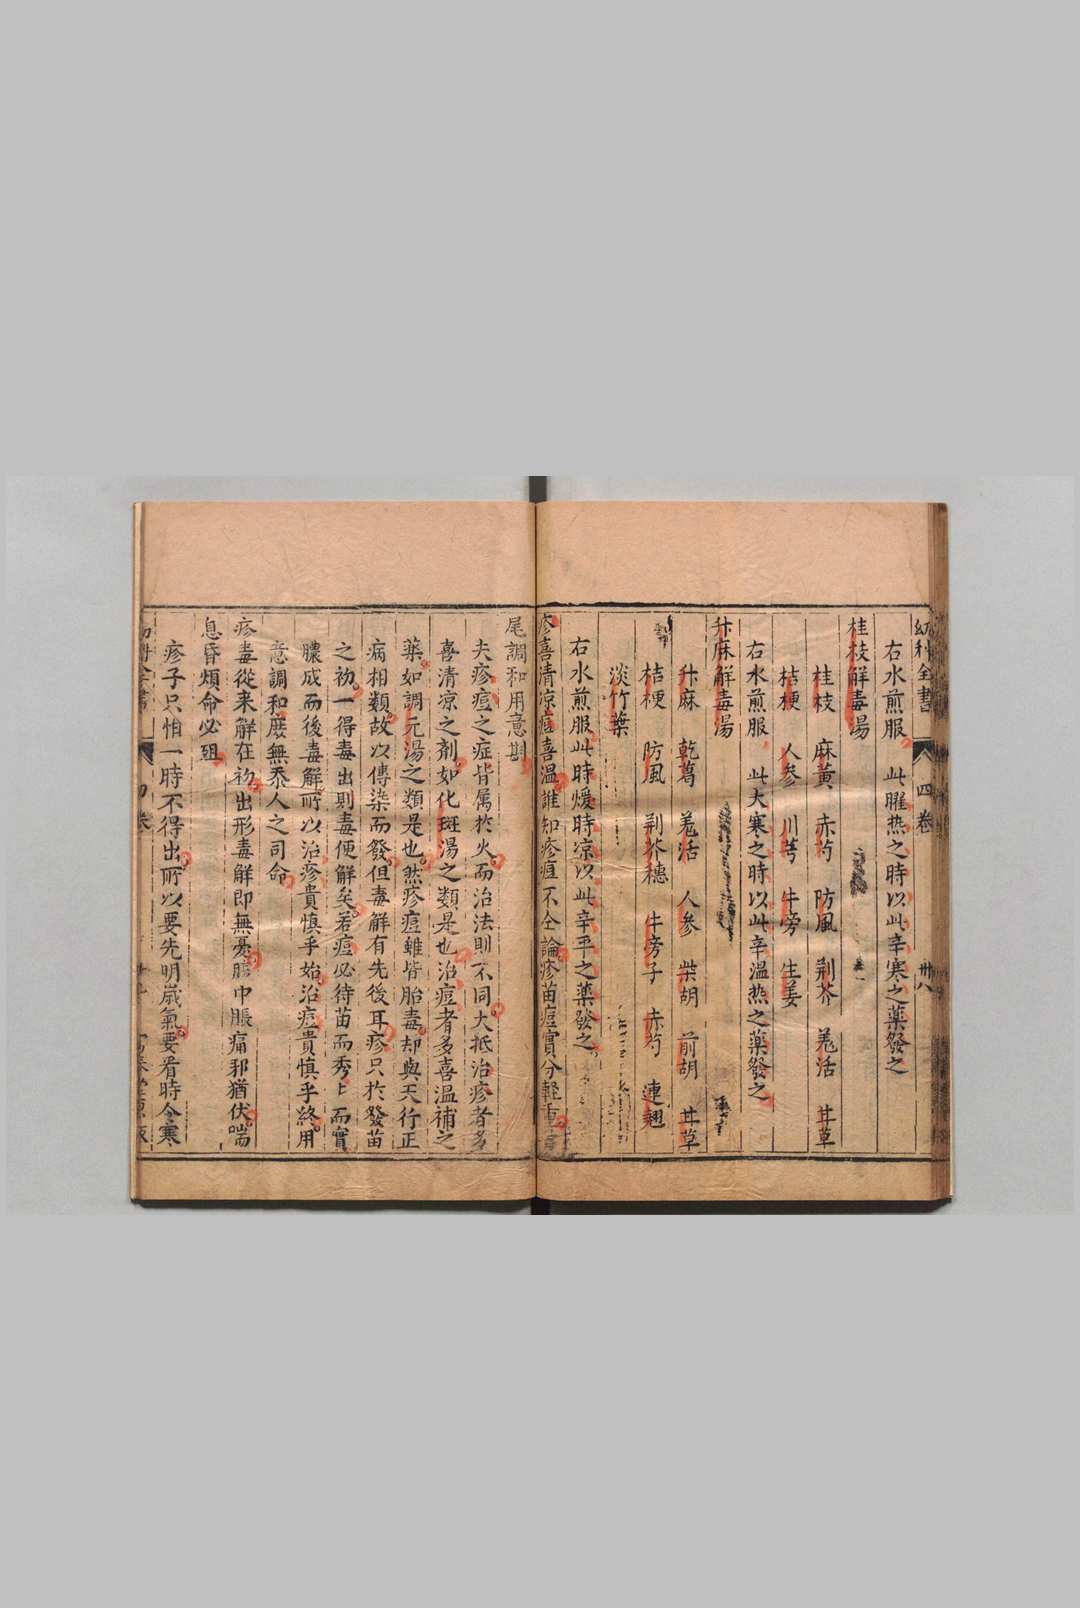 幼科全書 四卷 卅八
右水煎服 此膃热之時以此辛寒之藥發之
桂枝解毒湯
桂枝 麻黄 赤芍 防風 荆芥 羗活 甘草
桔梗 人參 川芎 牛旁 生姜
右水煎服 此大寒之時以此辛温热之藥發之
升麻解毒湯
升麻 乾葛 羗活 人參 柴胡 前胡 甘草
桔梗 防風 荆芥穗 牛旁子 赤芍 連翹
淡竹葉
右水煎服此時煖時凉以此辛平之藥發之
疹喜清凉痘喜温誰知疹痘不仝論疹苗痘實分輕重首
尾調和用意斟
夫疹痘之症皆属於火而治法則不同大抵治疹者多
喜清凉之剤如化斑湯之類是也治痘者多喜温補之
藥如調元湯之類是也然疹痘雖皆胎毒却與天行正
病相類故以傳染而發但毒解有先後耳疹只於發苗
之初一得毒出則毒便解矣若痘必待苗而秀上而實
膿成而後毒解所以治疹貴慎乎始治痘貴慎乎終用
意調和庶無忝人之司命
疹毒從来解在初出形毒解即無憂腹中脹痛邪猶伏喘
息昏煩命必殂
疹子只怕一時不得出所以要先明歲氣要看時令寒